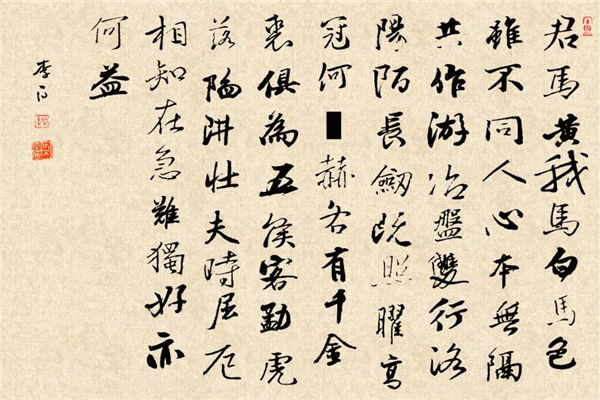 君馬黄我馬白馬色
雖不同人心本無隔
共作游冶盤雙行洛
陽陌長劔既照曜高
冠何赫各有千金
裘俱為五侯客勐虎
落陷阱壮夫時屈厄
相知在急難獨好亦
何益
李白